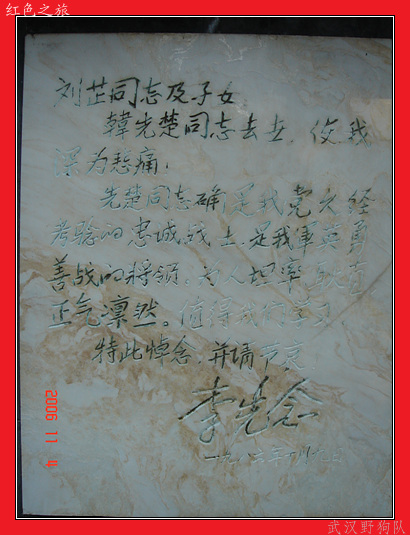 红色之旅
刘芷同志及子女
韩先楚同志去世，使我
深为悲痛！
先楚同志确是我党久经
考验的忠诚战士，是我军英勇
善战的将领。为人坦率
正气凛然。值得我们学习
特此悼念，并请节哀
李先念
一九八六年十月九日
2006 11 4
武汉野狗队